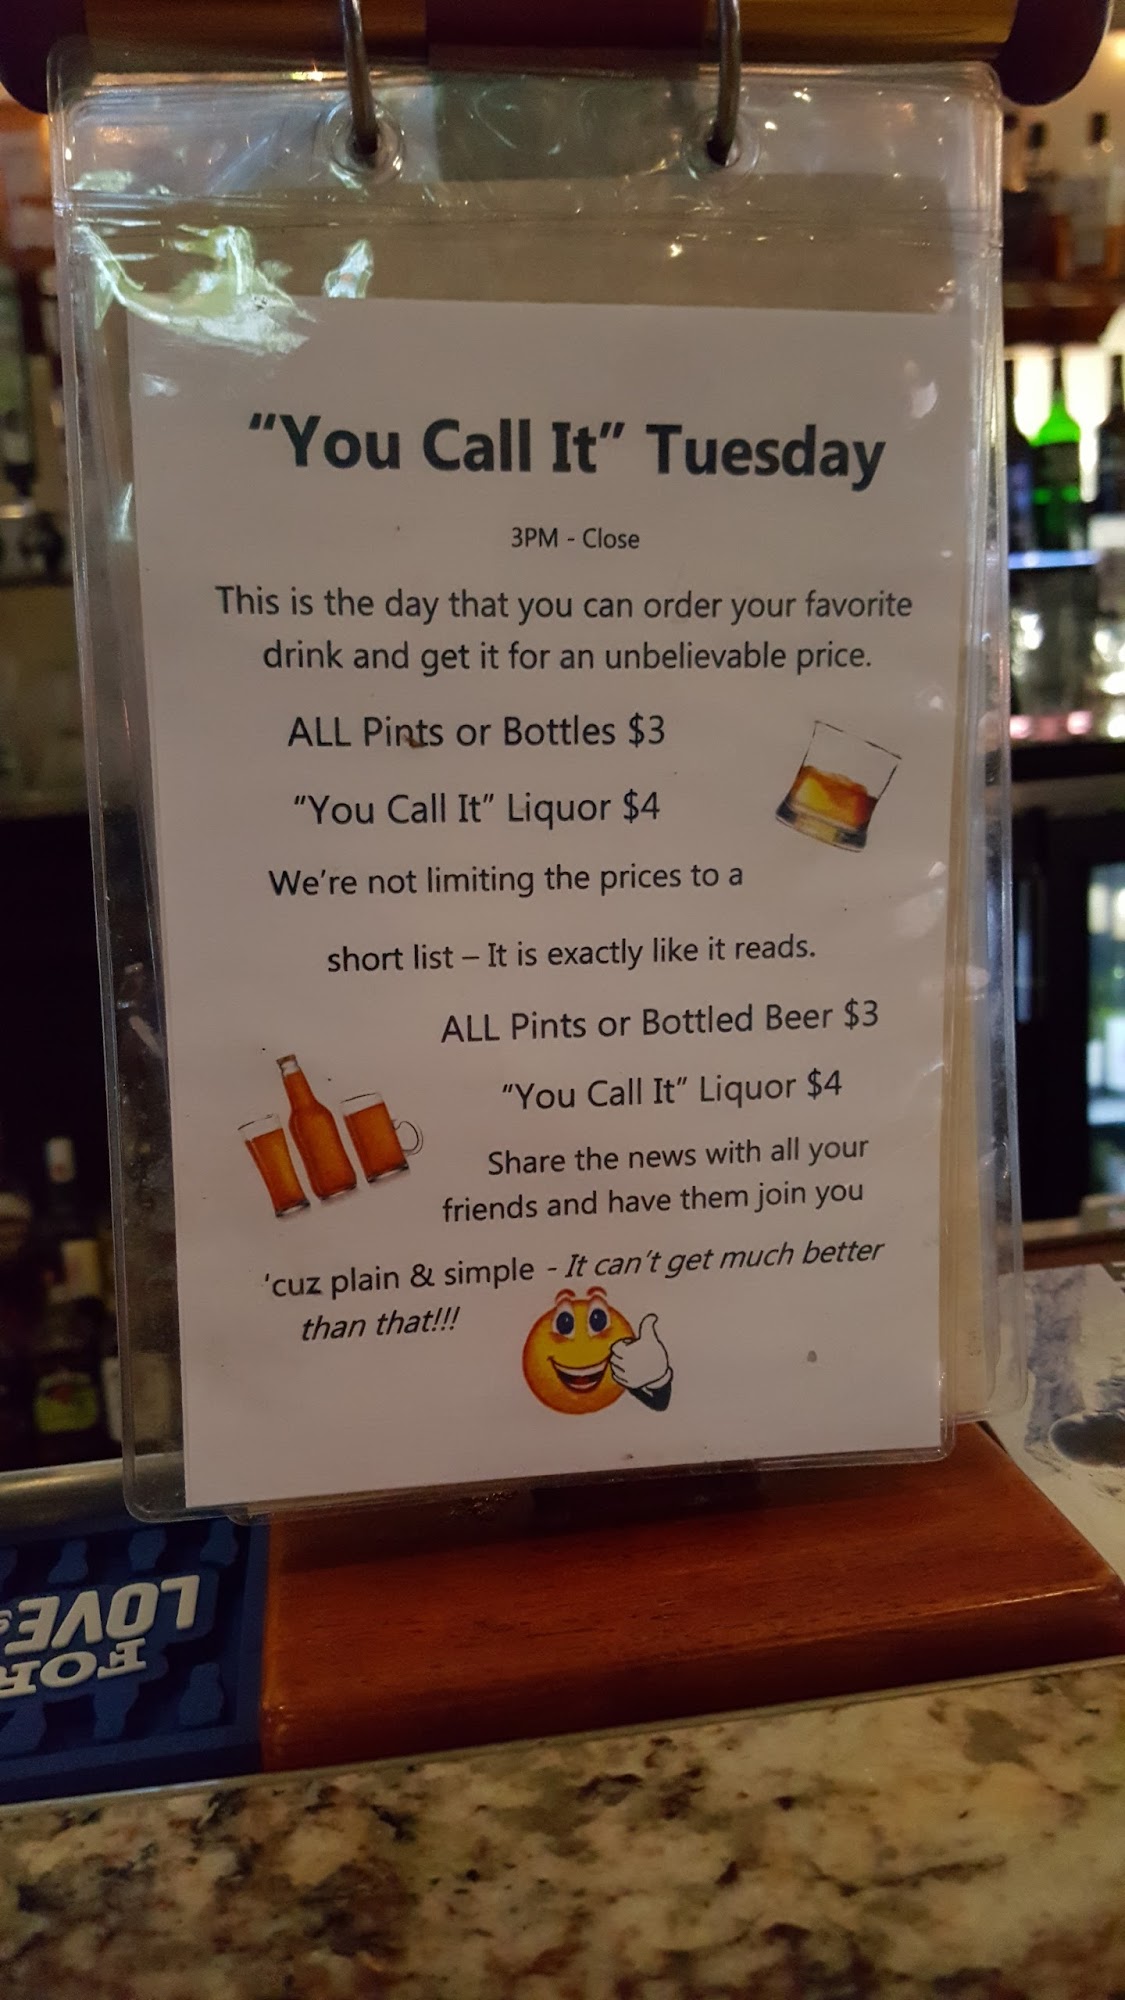 “You Call It” Tuesday
3PM - Close
This is the day that you can order your favorite
drink and get it for an unbelievable price.
ALL Pints or Bottles $3
“You Call It” Liquor $4
We're not limiting the prices to a
short list – It is exactly like it reads.
ALL Pints or Bottled Beer $3
“You Call It” Liquor $4
Share the news with all your
friends and have them join you
'cuz plain & simple - It can't get much better
than that!!!
FOR
LOVE